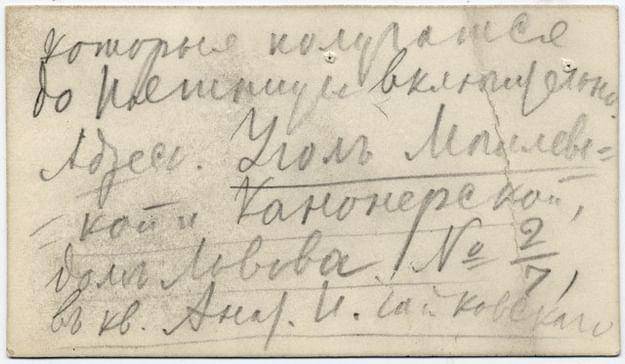 которые получатся
до пятницы включительно.
Адресъ. Уголъ Могилевс=
=кой и Канонерской,
домъ Львова, № 2/7,
въ кв. Анат. И. Чайковскаго